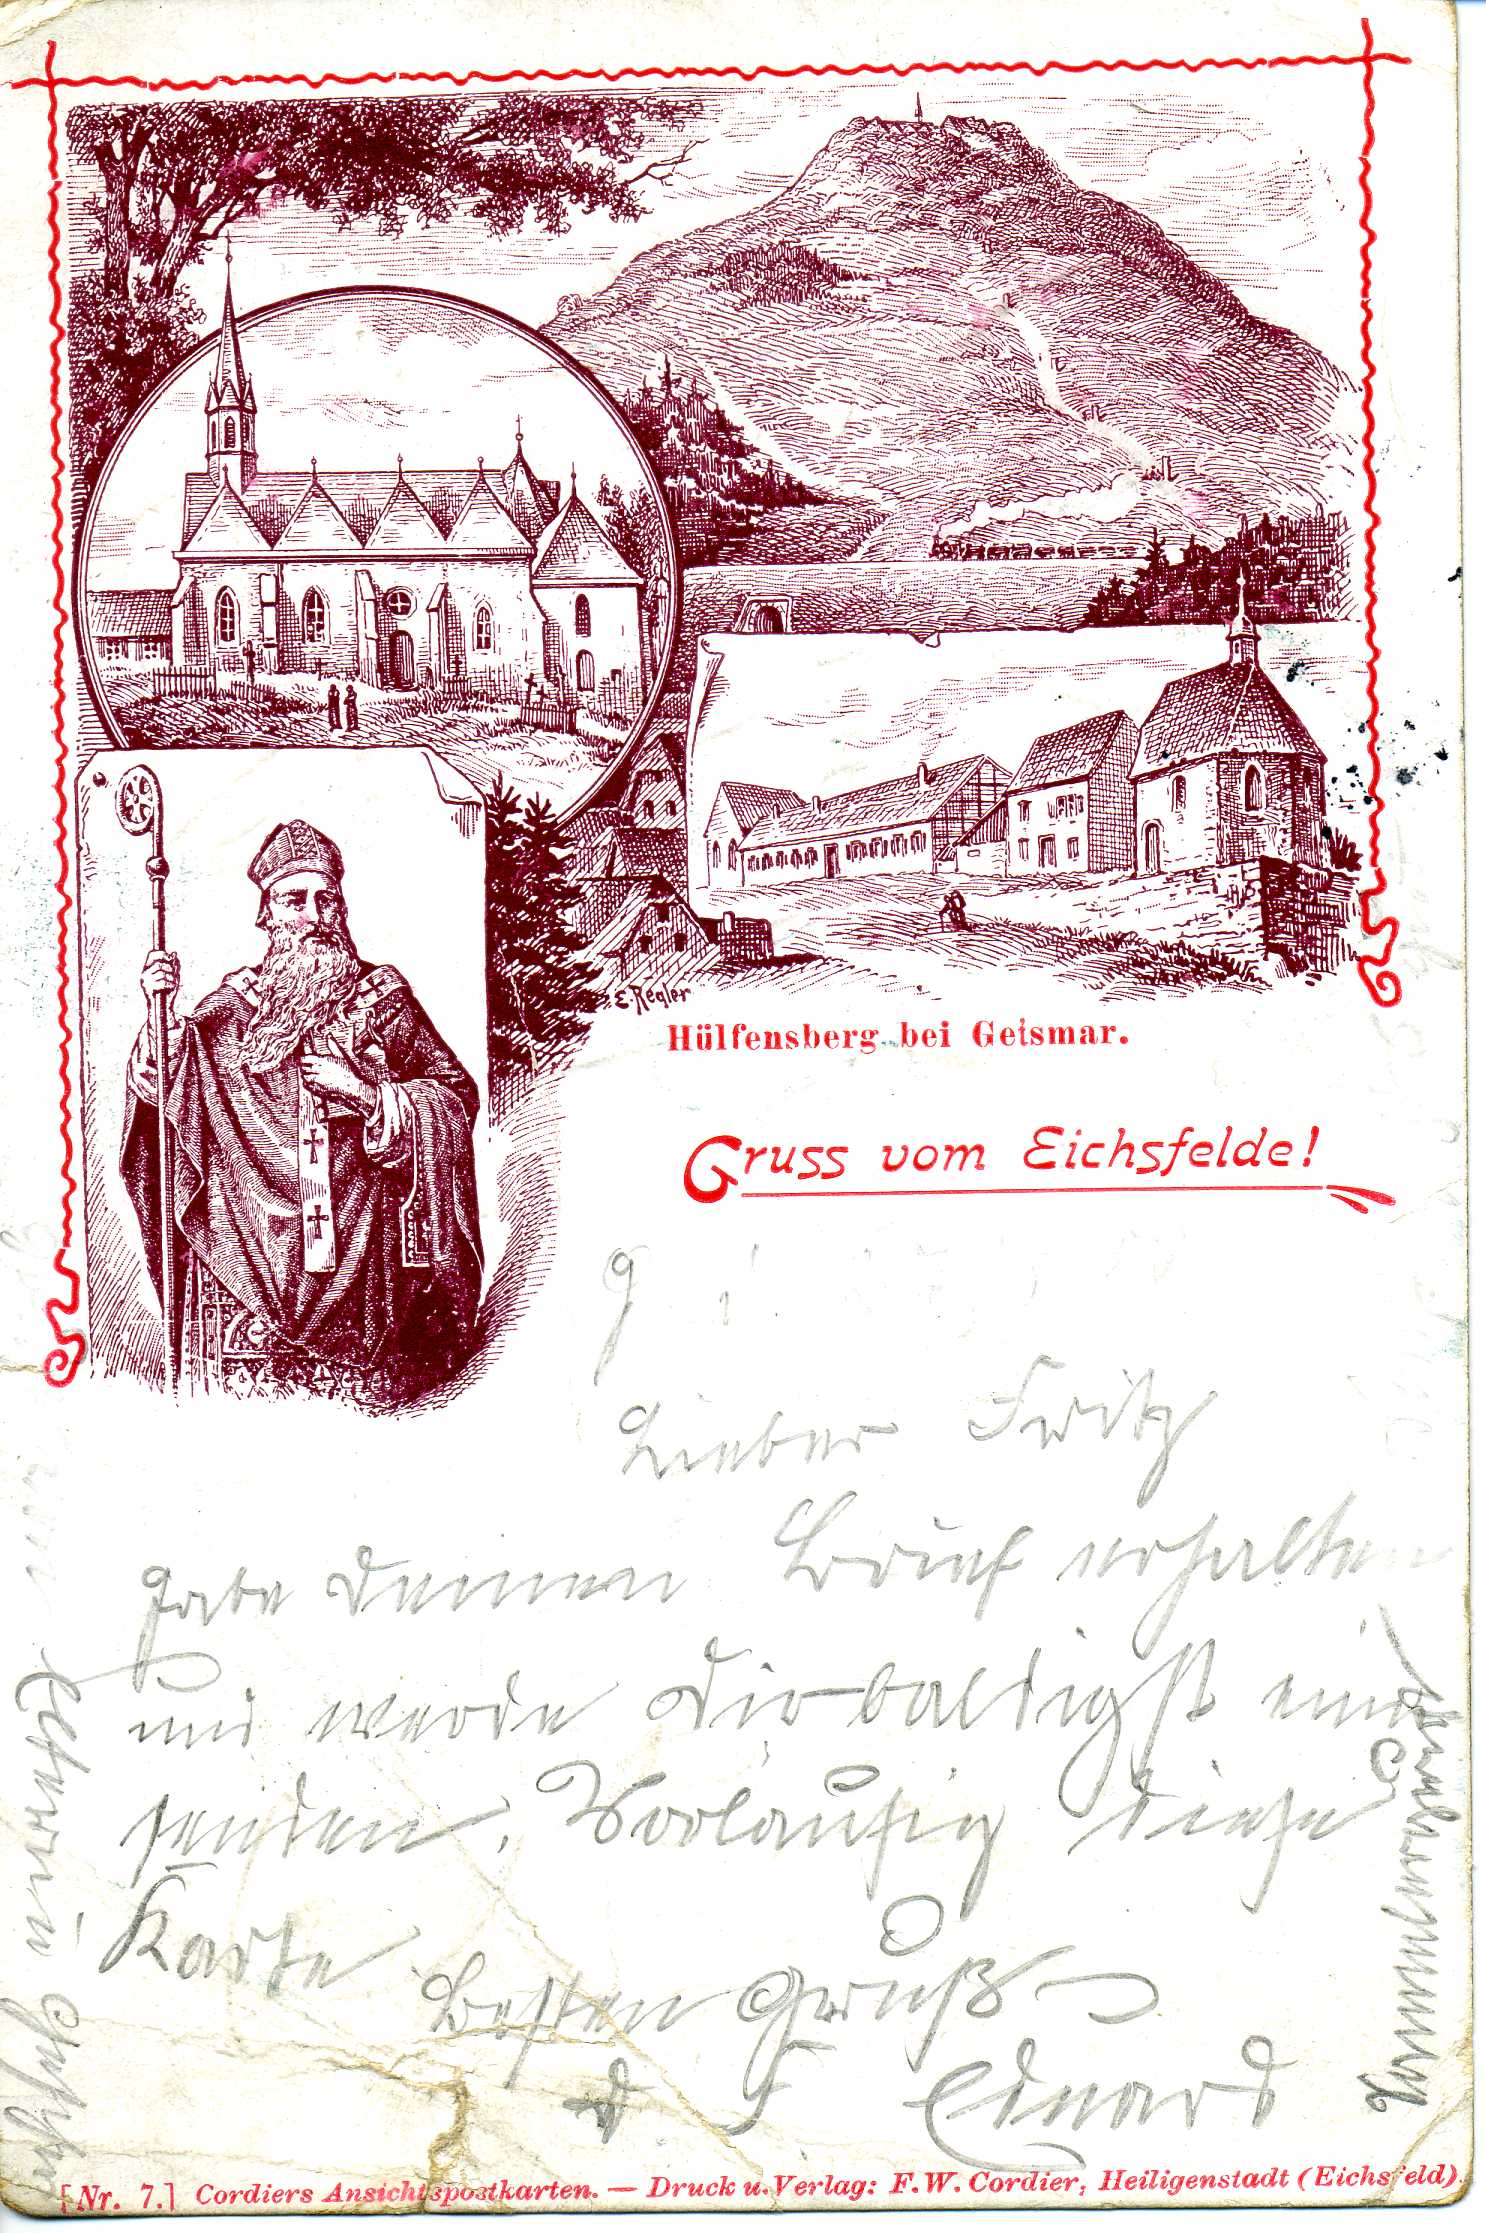 E. Regler
Hülfensberg bei Geismar.
Gruss vom Eichsfelde!
Lieber Fritz
Habe Deinen Brief erhalten
und werde Dir baldigst eine
senden. Vorläufig diese
Karte
Besten Gruß
D F Eduard
[Nr. 7.] Cordiers Ansichtspostkarten. — Druck u. Verlag: F. W. Cordier, Heiligenstadt (Eichsfeld).